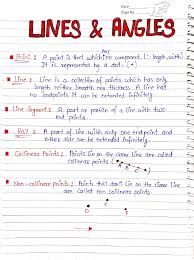 Date
LINES & ANGLES
Point : A point is that which no component (∴ length, width)
It is represented by a dot. (•)
Line : Line is a collection of points which has only
length neither breadth nor thickness. A line has
no endpoints. It can be extended infinitely.
Line Segment : A part or portion of a line with two
end points.
Ray : A part of line with only one end point and
other side can be extended infinitely.
Collinear Points : Points lie on the same line are called
collinear points.
Non-collinear Points : Points that don't lie on the same line
are called non collinear points.